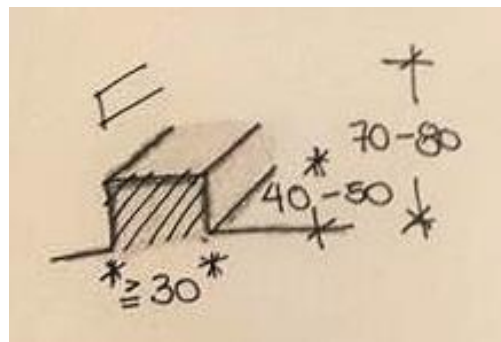 70-80
40-50
≥30